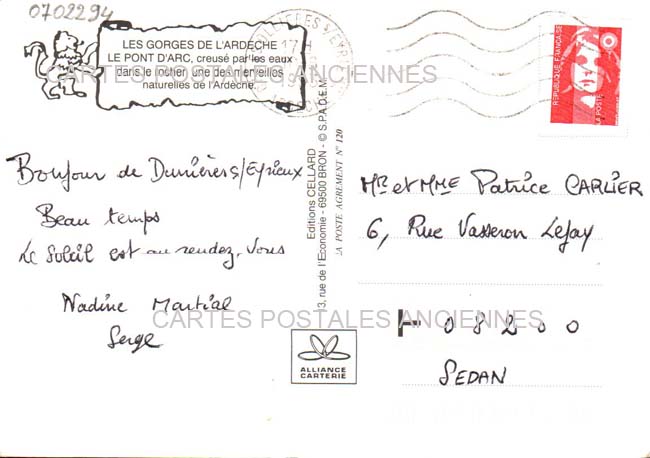 0702294
LES GORGES DE L'ARDÈCHE
LE PONT D'ARC, creusé par les eaux
dans le rocher, une des merveilles
naturelles de l'Ardèche.
17H
CARTES POSTALES ANCIENNES
RÉPUBLIQUE FRANÇAISE
LA POSTE
Bonjour de Dunières/Eyrieux
Beau temps
Le Soleil est au rendez-vous
Nadine Martial
Serge
Editions CELLARD
3, rue de l'Economie - 69500 BRON - © S.P.A.D.E.M.
LA POSTE AGREMENT N° 120
Mr et Mme Patrice CARLIER
6, Rue Vasseron Lejay
08200
SEDAN
CARTES POSTALES ANCIENNES
ALLIANCE
CARTERIE